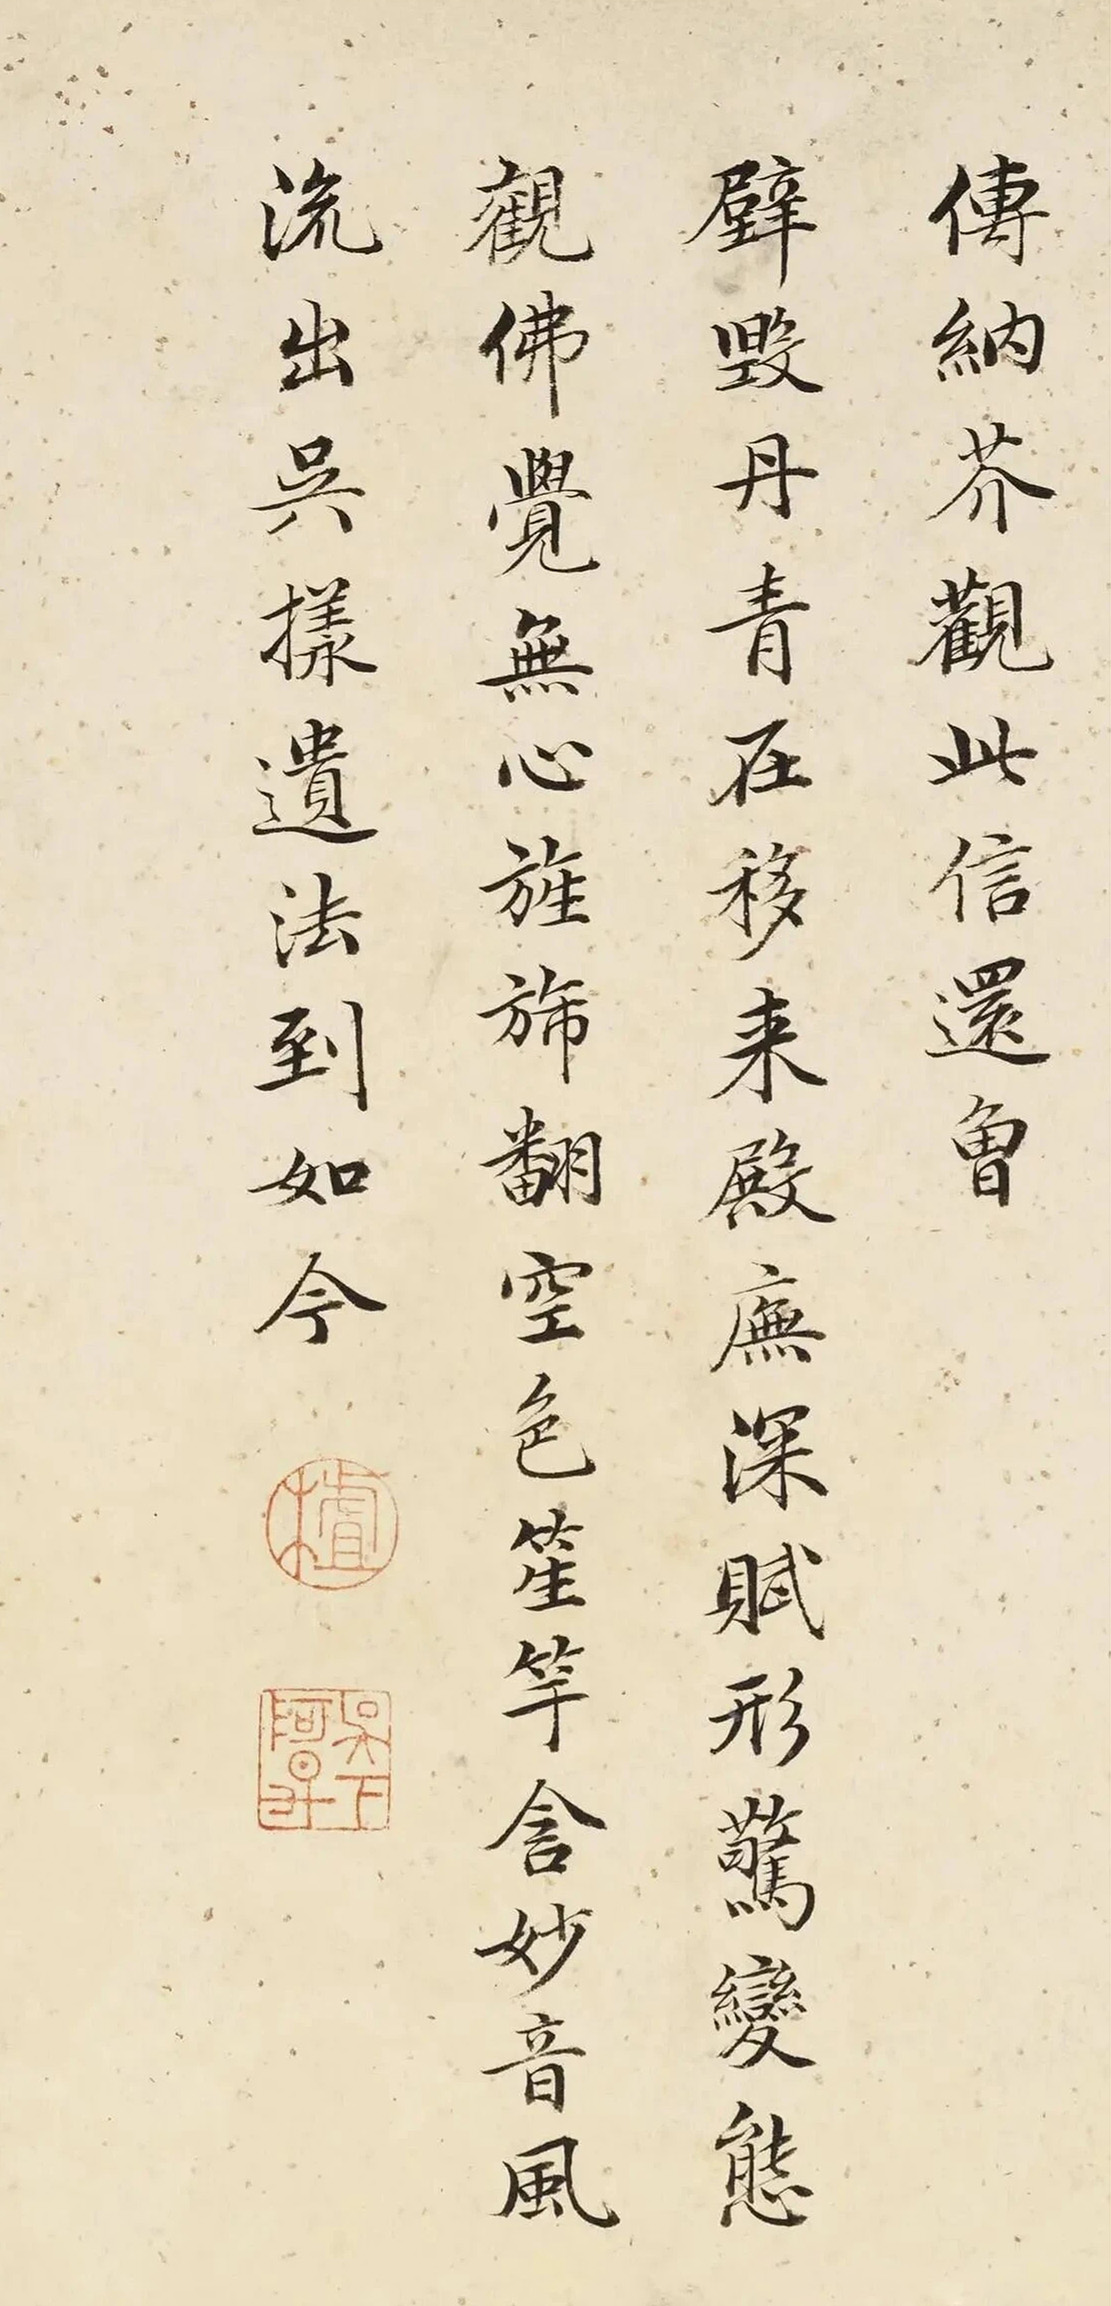 傳納芥觀此信還曾
壁毀丹青在移来殿廡深賦形驚變態
觀佛覺無心旌旆翻空色笙竽含妙音風
流出吳樣遺法到如今
吳下阿